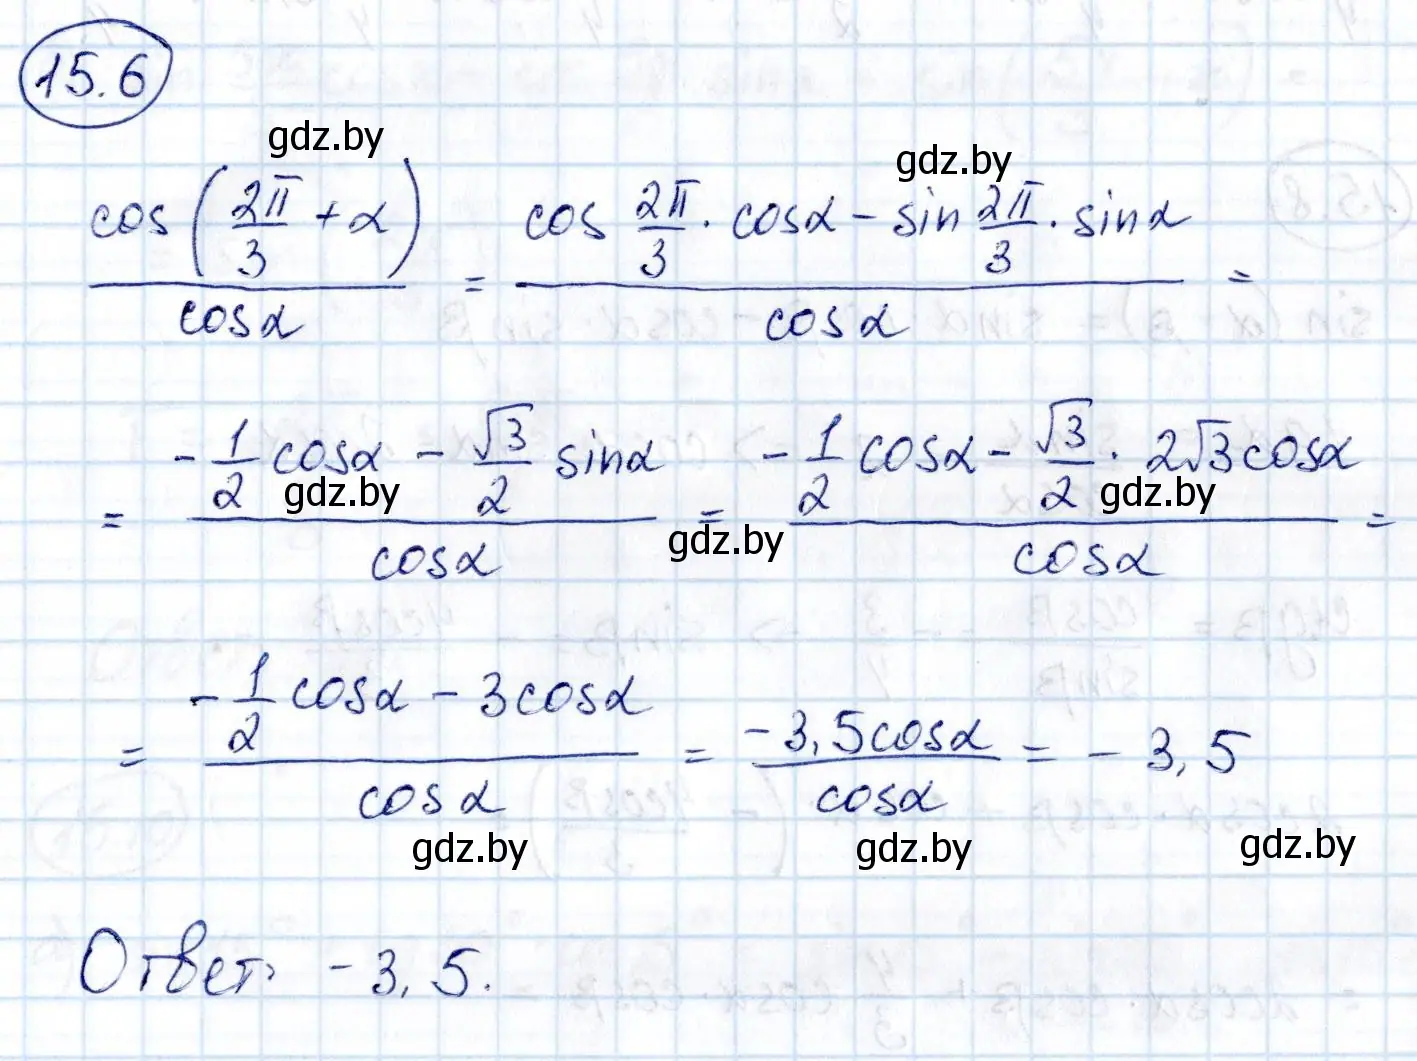 15.6
gdz.by
gdz.by
cos(2π/3 + α)/cosα = (cos 2π/3 · cosα − sin 2π/3 · sinα)/cosα =
= (−1/2 cosα − √3/2 sinα)/cosα = (−1/2 cosα − √3/2 · 2√3 cosα)/cosα =
gdz.by
gdz.by
gdz.by
= (−1/2 cosα − 3cosα)/cosα = −3,5cosα/cosα = −3,5
gdz.by
gdz.by
gdz.by
Ответ: −3,5.